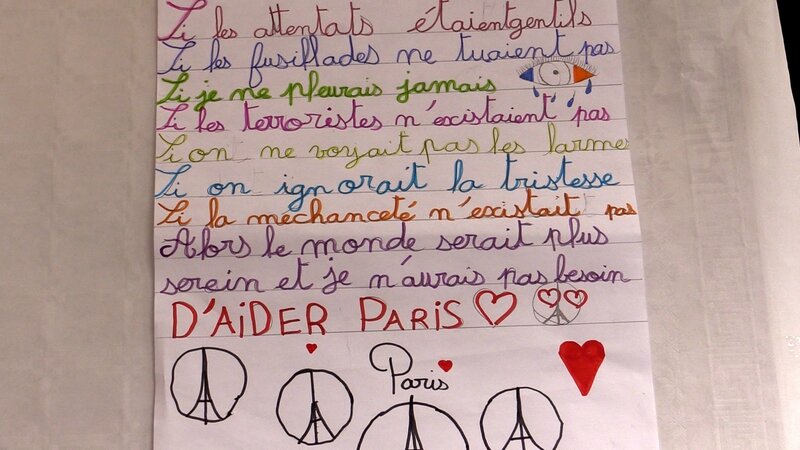 Si les attentats étaientgentils
Si les fusillades ne tuaient pas
Si je ne pleurais jamais
Si les terroristes n'existaient pas
Si on ne voyait pas les larmes
Si on ignorait la tristesse
Si la mechanceté n'existait pas
Alors le monde serait plus
serein et je n'aurais pas besoin
D'AiDER PARiS
Paris